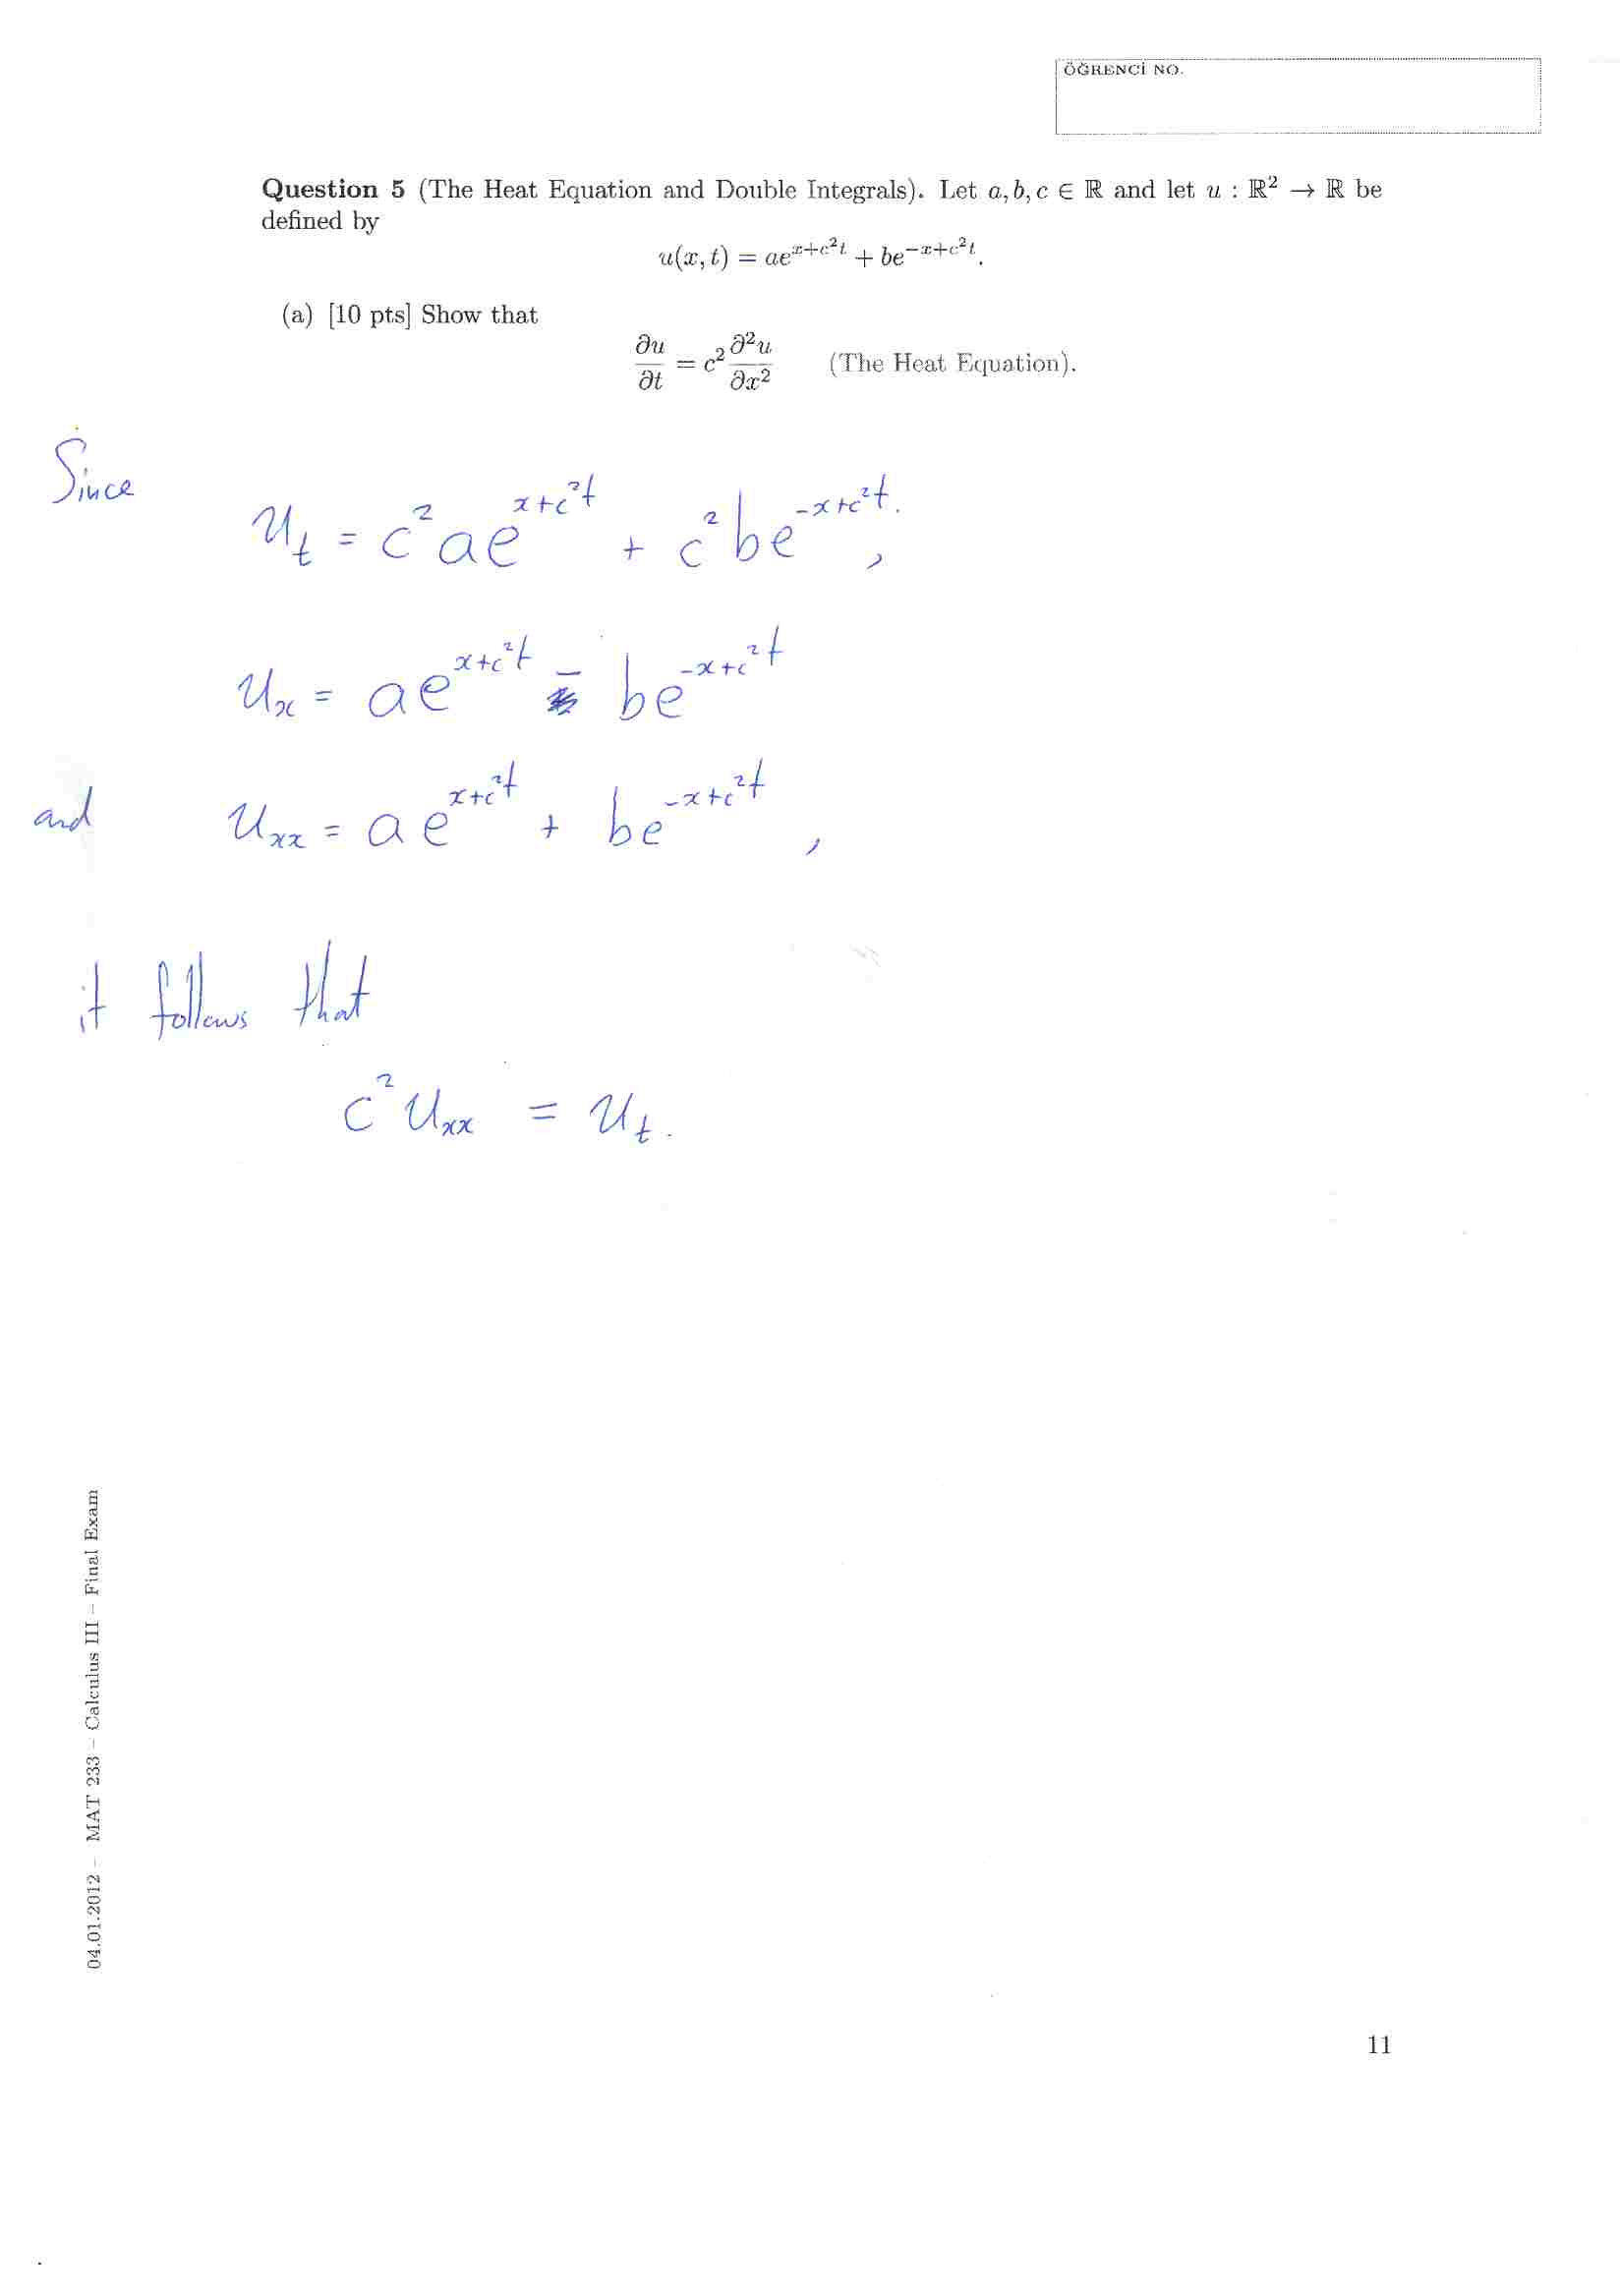 ÖĞRENCİ NO.
Question 5 (The Heat Equation and Double Integrals). Let a, b, c ∈ ℝ and let u : ℝ² → ℝ be
defined by
u(x, t) = ae^{x+c²t} + be^{−x+c²t}.
(a) [10 pts] Show that
∂u/∂t = c² ∂²u/∂x² (The Heat Equation).
Since
u_t = c²ae^{x+c²t} + c²be^{-x+c²t}.,
u_x = ae^{x+c²t} - be^{-x+c²t}
and u_xx = ae^{x+c²t} + be^{-x+c²t},
it follows that
c²u_xx = u_t.
04.01.2012 – MAT 233 – Calculus III – Final Exam
11